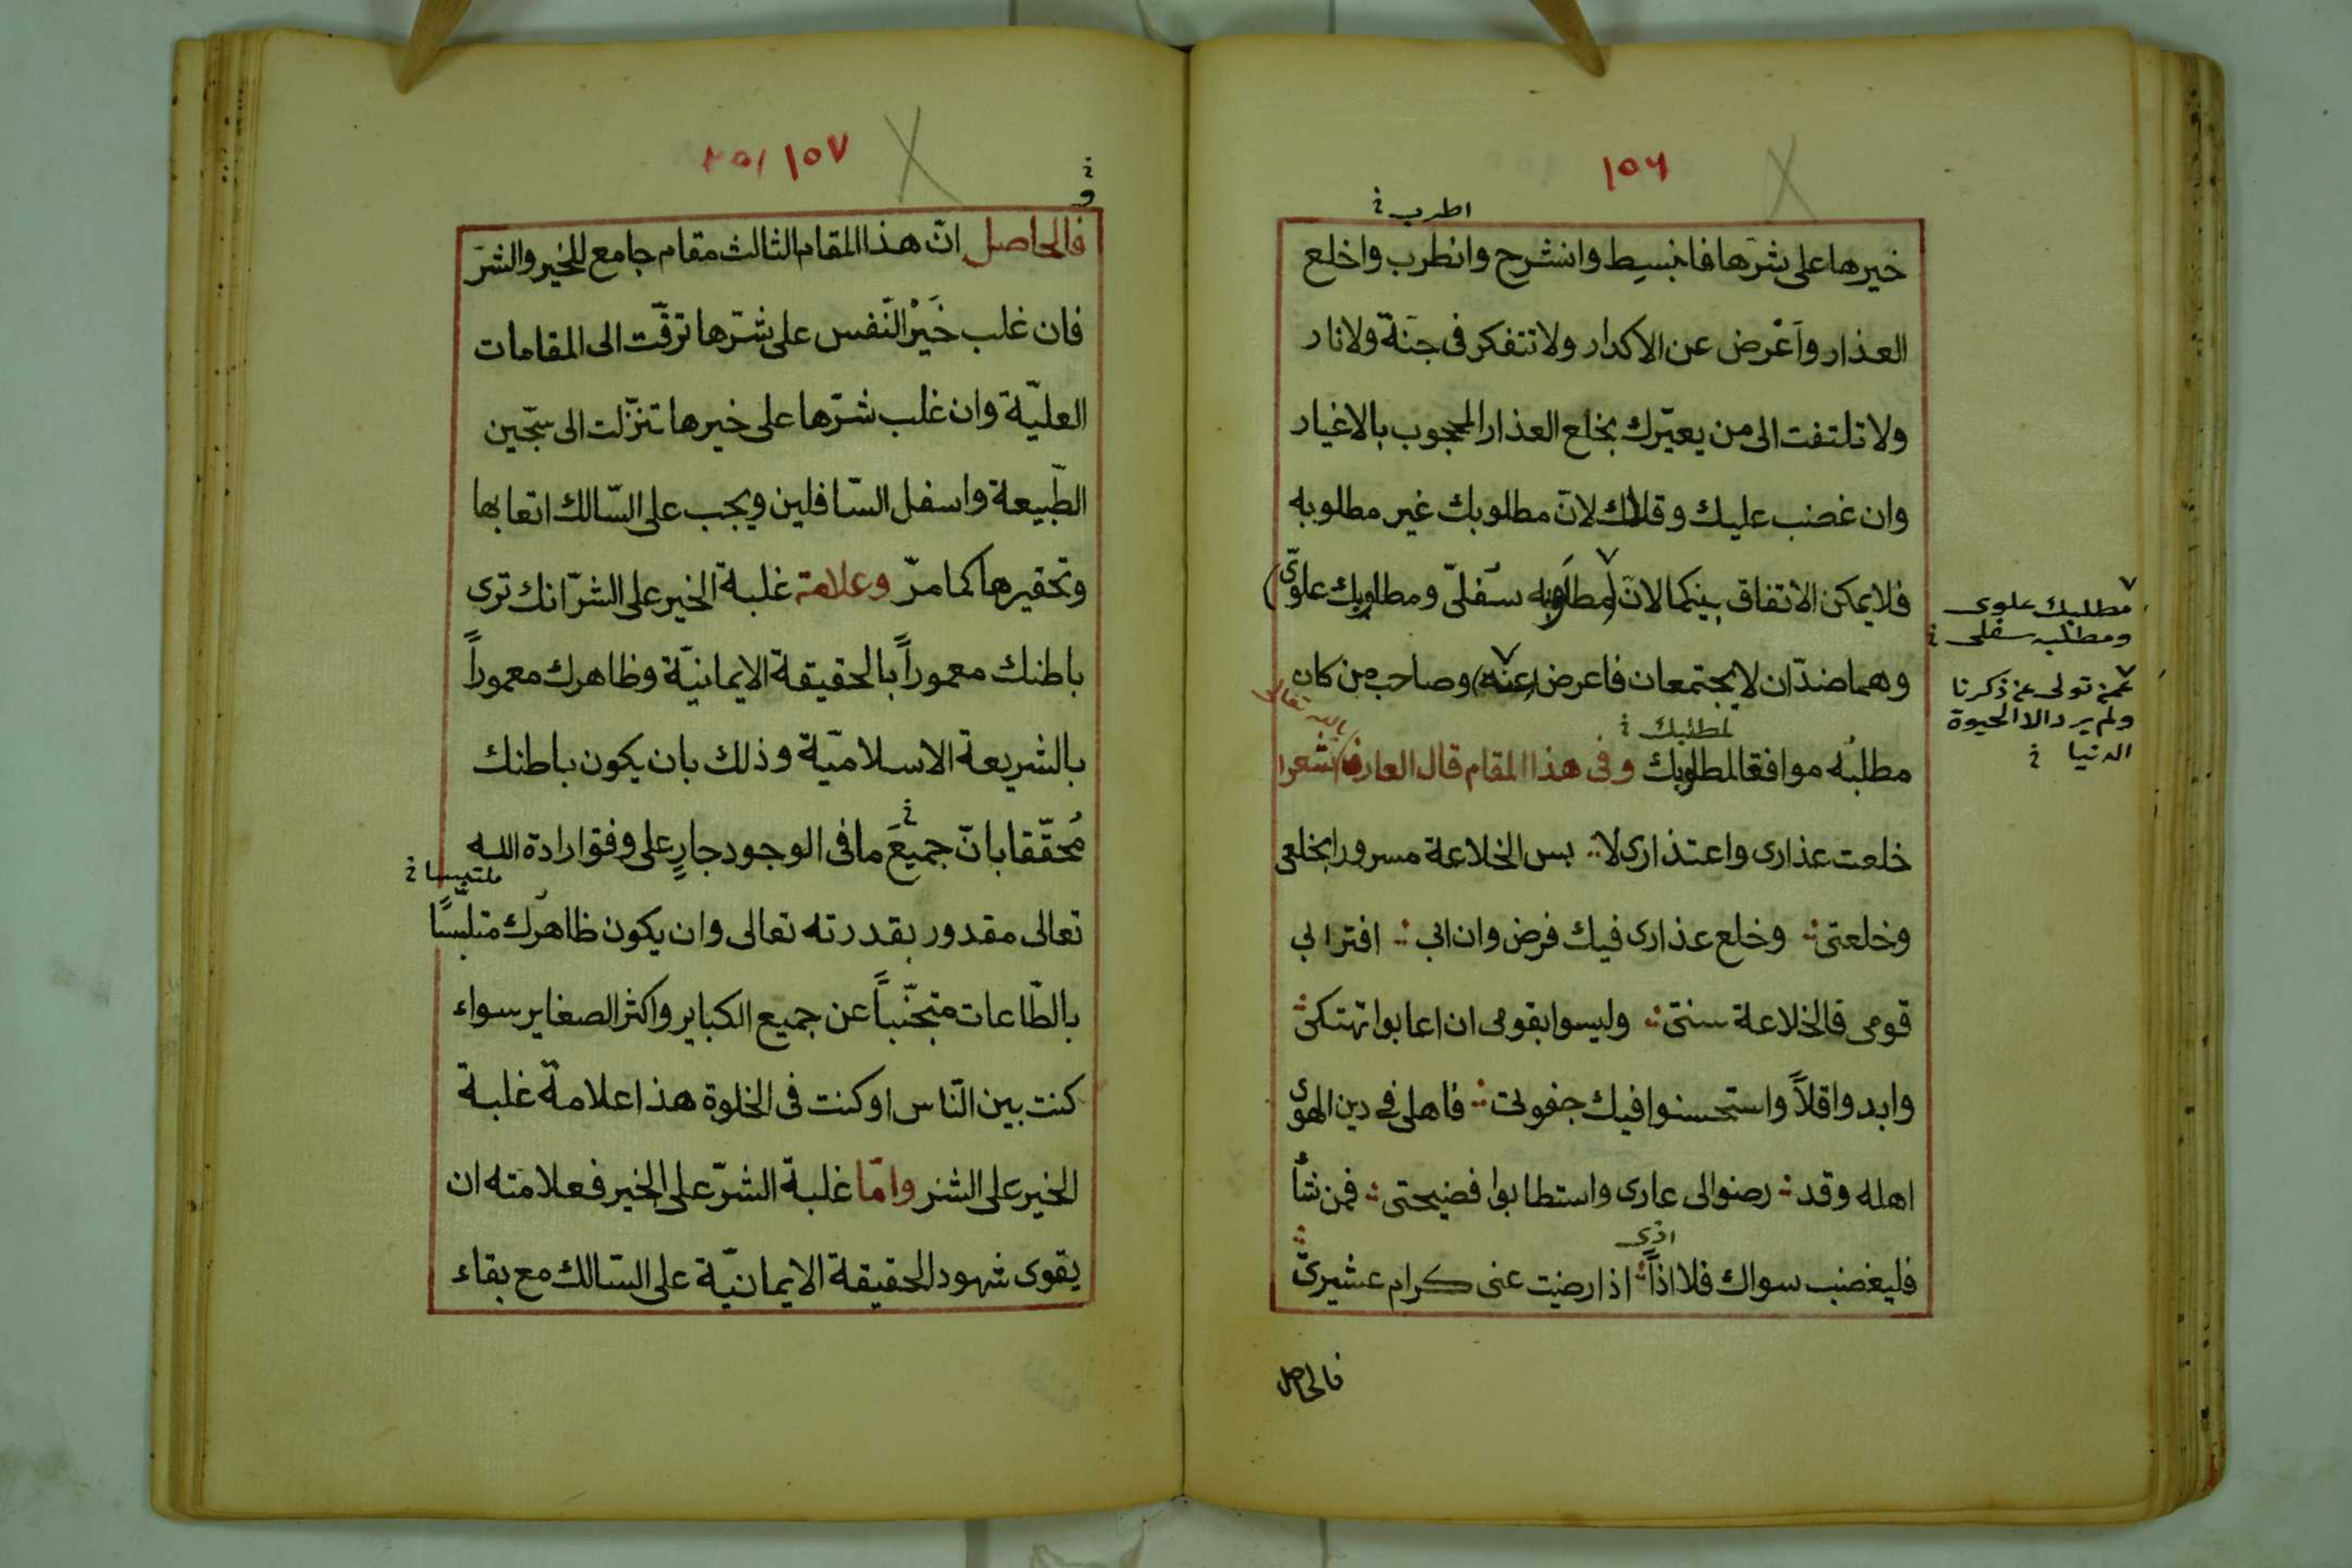 ١٥٦
اطرب خ
خيرها على شرّها فانبسِط وانشرح وانطرب واخلع
العذار وأَعْرض عن الاكدار ولا تتفكر فى جنّة ولا نار
ولا تلتفت الى من يعيّرك بخلع العذار المحجوب بالاغيار
وان غضب عليك وقلاك لانّ مطلوبك غير مطلوبه
فلا يمكن الاتفاق بينكما لانّ (مطلوبه سفلىّ ومطلوبك علوىّ)
مطلبك علوى
ومطلبه سفلى خ
وهما ضدّان لا يجتمعان فاعرض (عنه) وصاحب من كان
عمن تولى عن ذكرنا
ولم يرد الا الحيوة
الدنيا خ
لمطلبك خ
بالله تعالى
مطلبُه موافقا لمطلوبك وفى هذا المقام قال العارف شعرا
خلعت عذارى واعتذارى لا؞ بس الخلاعة مسرورا بخلعى
وخلعتى؞ وخلع عذارى فيك فرض وان ابى؞ اقترابى
قومى فالخلاعة سنتى؞ وليسوا بقومى ان اعابوا تهتكى؞
وابدوا قلاً واستحسنوا فيك جفوتى؞ فاهلى فى دين الهوى
اهله وقد؞ رضوا لى عارى واستطابوا فضيحتى؞ فمن شأ
اذى
فليغضب سواك فلا اذاً؞ اذا رضيت عنى كرام عشيرتى؞
فالحاصل
١٥٧
و خ
فالحاصل انّ هذا المقام الثالث مقام جامع للخير والشرّ
فان غلب خَيْرُ النّفس على شرّها ترقّت الى المقامات
العليّة وان غلب شرّها على خيرها تنزّلت الى سجّين
الطّبيعة واسفل السّافلين ويجب على السّالك اتعابها
وتحقيرها كما مرّ وعلامة غلبة الخير على الشرّ انك ترى
باطنك معموراً بالحقيقة الايمانيّة وظاهرك معموراً
بالشريعة الاسلاميّة وذلك بان يكون باطنك
مُحقّقا بانّ جميعَ ما فى الوجود جارٍ على وفق ارادة الله
ملتبسا خ
تعالى مقدور بقدرته تعالى وان يكون ظاهرُك متلبّسًا
بالطّاعات متجنّباً عن جميع الكباير واكثر الصغاير سواء
كنت بين النّاس او كنت فى الخلوة هذا علامة غلبة
الخير على الشر وامّا غلبة الشرّ على الخير فعلامته ان
يقوى شهود الحقيقة الايمانيّة على السّالك مع بقاء